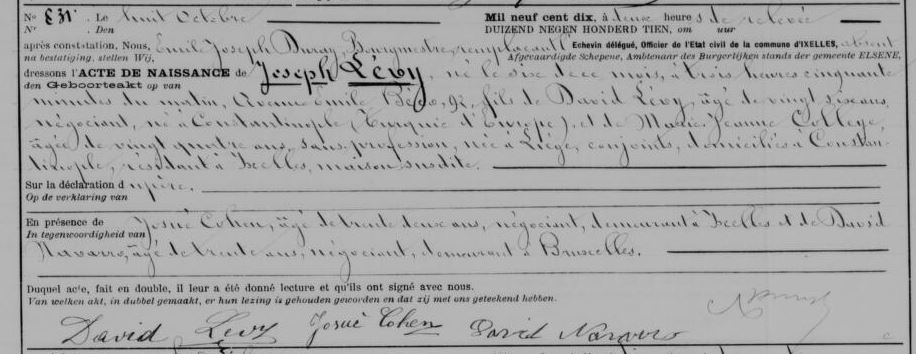 No 831. Le huit Octobre Mil neuf cent dix, à deux heures de relevée
Nr Den DUIZEND NEGEN HONDERD TIEN, om uur
après constatation. Nous, Emile Joseph Duray, Bourgmestre, remplaçant l' Echevin délégué, Officier de l'Etat civil de la commune d'IXELLES, absent
na bestatiging, stellen Wij, Afgevaardigde Schepene, Ambtenaar des Burgerlijken stands der gemeente ELSENE,
dressons l'ACTE DE NAISSANCE de Joseph Lévy, né le six de ce mois, à trois heures cinquante
den Geboorteakt op van
minutes du matin, Avenue Emile Béco, 92, fils de David Lévy, âgé de vingt six ans,
négociant, né à Constantinople (Turquie d'Europe), et de Marie Jeanne Collége,
âgée de vingt quatre ans, sans profession, née à Liége, conjoints, domiciliés à Constan-
tinople, résidant à Ixelles, maison susdite.
Sur la déclaration du père.
Op de verklaring van
En présence de Josué Cohen, âgé de trente deux ans, négociant, demeurant à Ixelles et de David
In tegenwoordigheid van
Navarro, âgé de trente ans, négociant, demeurant à Bruxelles.
Duquel acte, fait en double, il leur a été donné lecture et qu'ils ont signé avec nous.
Van welken akt, in dubbel gemaakt, er hun lezing is gehouden geworden en dat zij met ons geteekend hebben.
David Levy Josué Cohen David Navarro